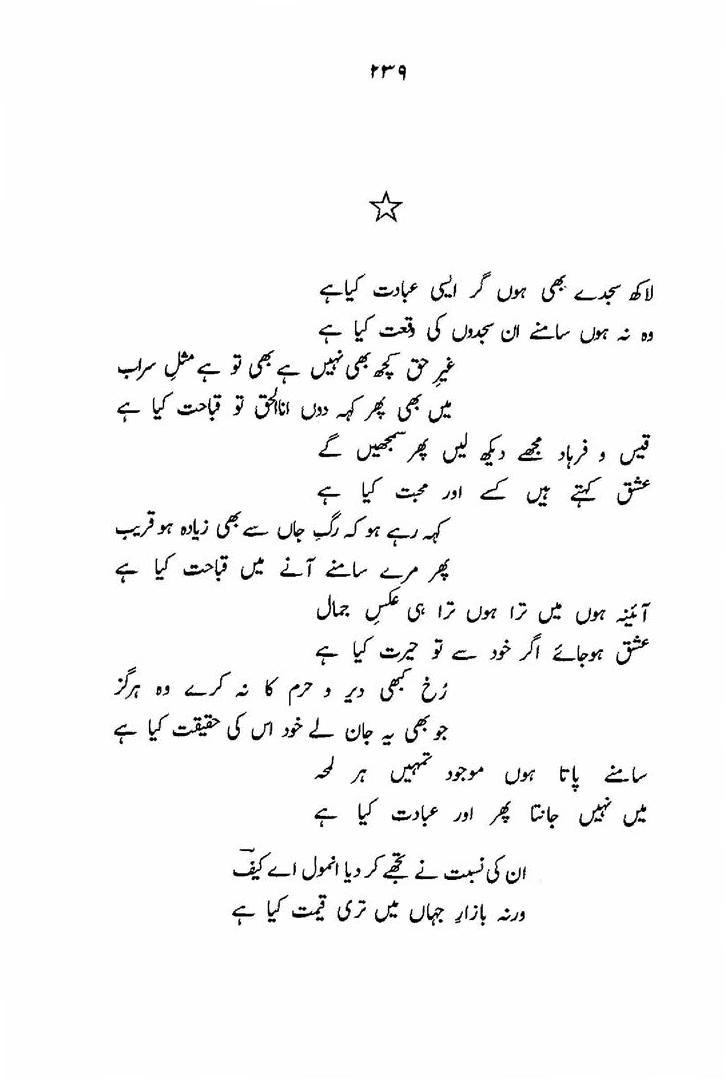 ۲۳۹
لاکھ سجدے بھی ہوں گر ایسی عبادت کیاہے
وہ نہ ہوں سامنے ان سجدوں کی وقعت کیا ہے
غیرِ حق کچھ بھی نہیں ہے بھی تو ہے مثلِ سراب
میں بھی پھر کہہ دوں اناالحق تو قباحت کیا ہے
قیس و فرہاد مجھے دیکھ لیں پھر سمجھیں گے
عشق کہتے ہیں کسے اور محبت کیا ہے
کہہ رہے ہو کہ رگِ جاں سے بھی زیادہ ہو قریب
پھر مرے سامنے آنے میں قباحت کیا ہے
آئینہ ہوں میں ترا ہوں ترا ہی عکسِ جمال
عشق ہوجائے اگر خود سے تو حیرت کیا ہے
رُخ کبھی دیر و حرم کا نہ کرے وہ ہرگز
جو بھی یہ جان لے خود اس کی حقیقت کیا ہے
سامنے پاتا ہوں موجود تمہیں ہر لمحہ
میں نہیں جانتا پھر اور عبادت کیا ہے
ان کی نسبت نے تجھے کر دیا انمول اے کیفؔ
ورنہ بازارِ جہاں میں تری قیمت کیا ہے